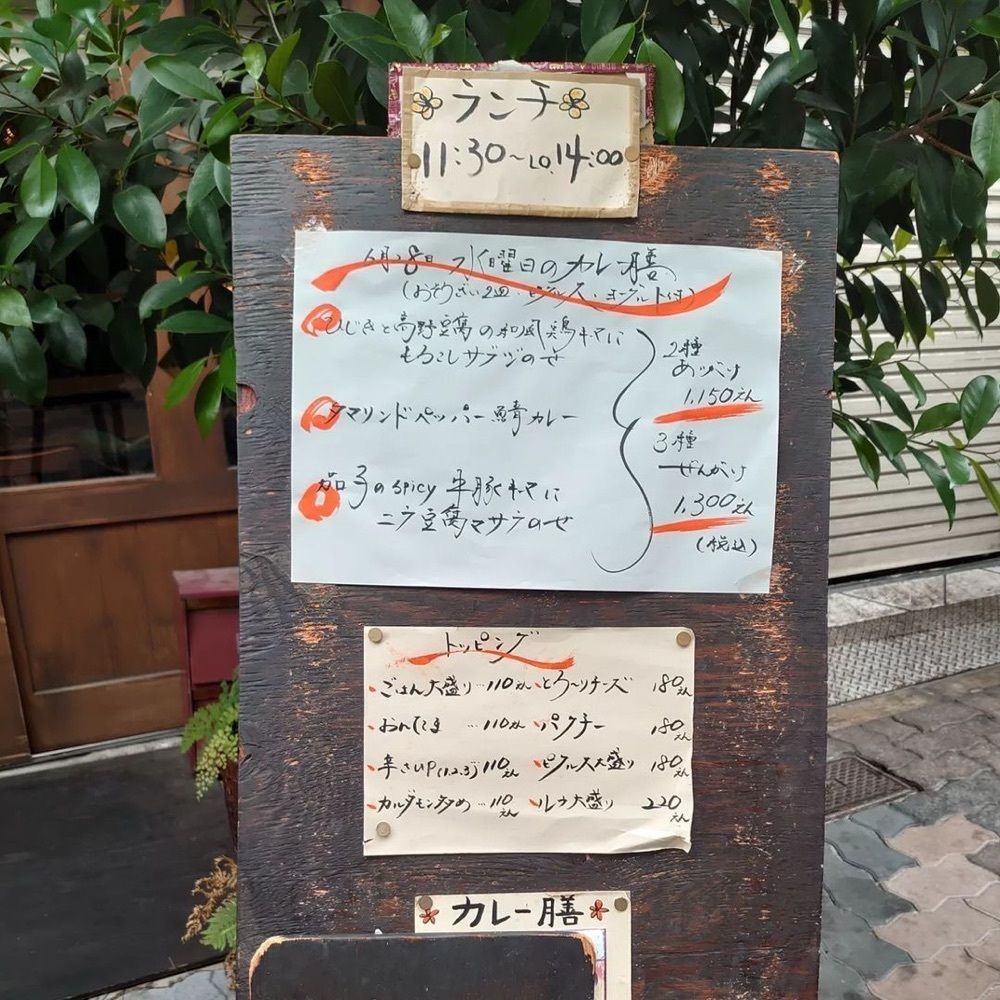 ランチ
11:30〜L.O.14:00
水曜日のカレー膳
(おそうざい2皿・ピクルス・ヨーグルト付)
ひじきと高野豆腐の和風鶏キーマに
もろこしサブジのせ
タマリンドペッパー鯖カレー
茄子のspicy 牛豚キーマに
ニラ豆腐マサラのせ
2種
あいがけ
1,150えん
3種
ぜんがけ
1,300えん
(税込)
トッピング
・ごはん大盛り…110えん
・おんたま …110えん
・辛さUP(1.2.3) 110えん
・カルダモン多め…110えん
・とろ〜りチーズ 180えん
・パクチー 180えん
・ピクルス大盛り 180えん
・ルウ大盛り 220えん
カレー膳